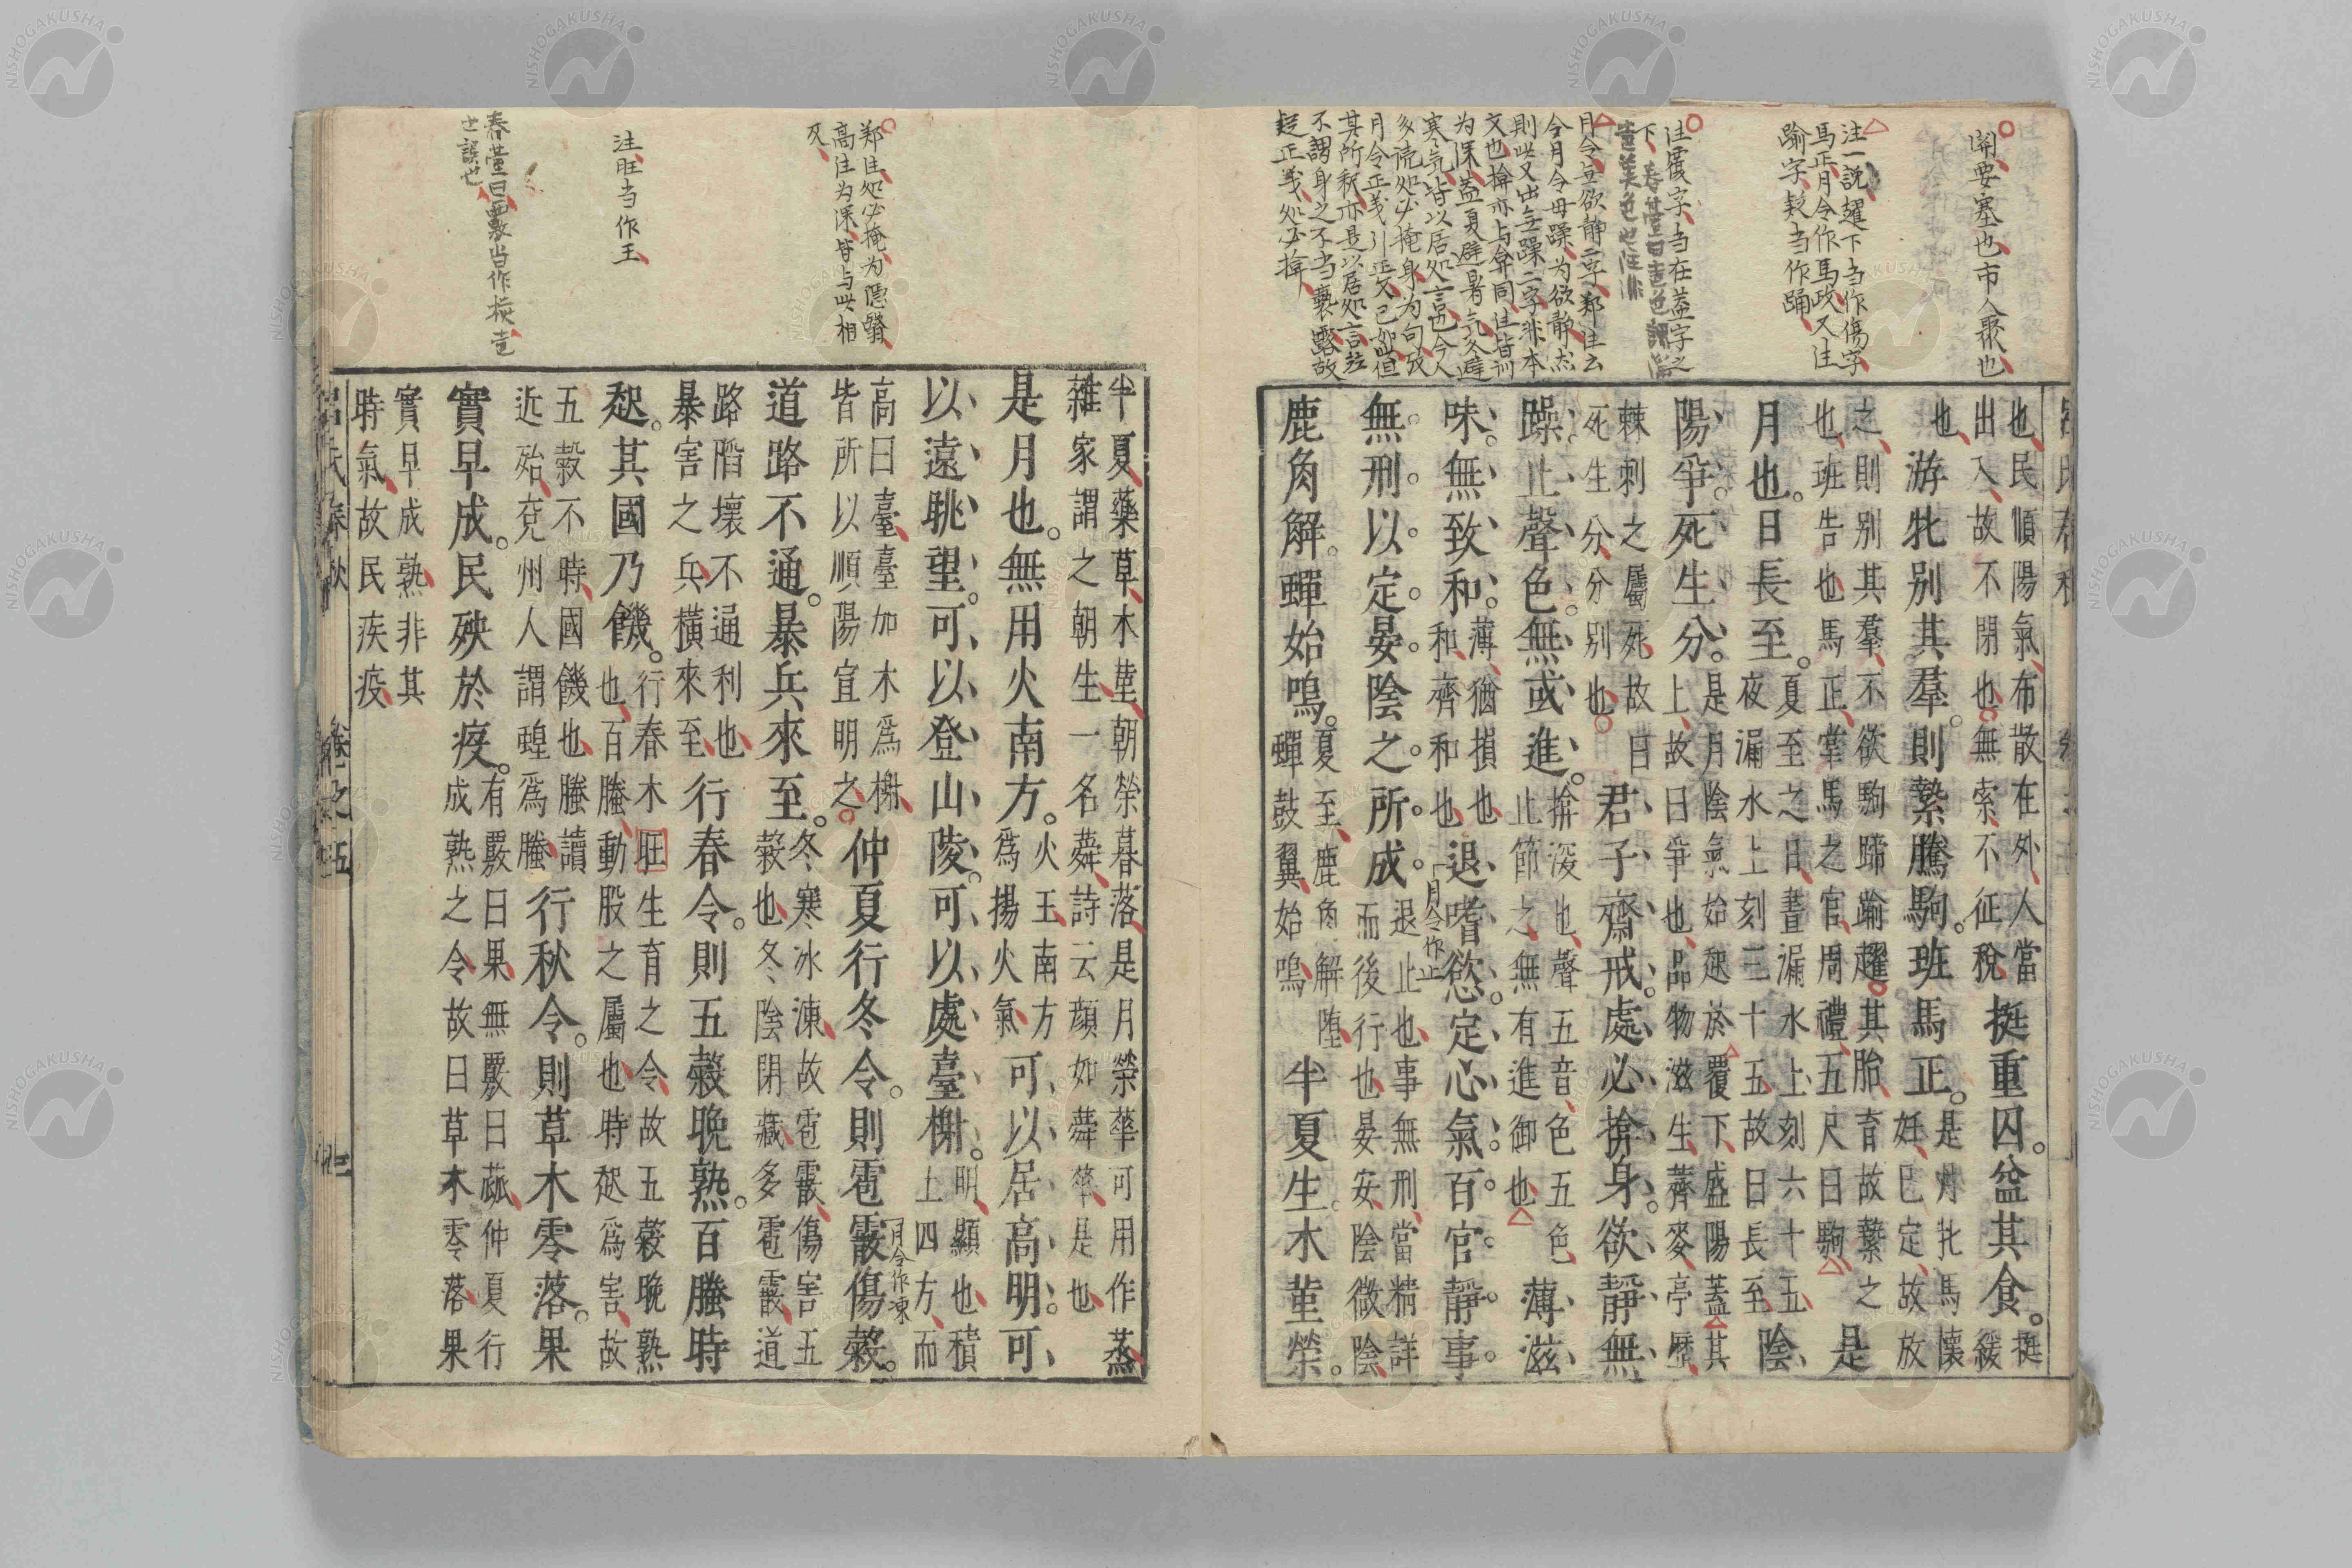 ○關要塞也市人聚也
注一說趯下当作傷字
馬正月令作馬政又注
踰字疑当作踊
注覆字当在蓋字之
下
月令無欲靜二字鄭注云
今月令毋躁為欲靜然
則此又出無躁二字非本
文也揜亦与弇同注皆訓
为深蓋夏避暑气冬避
寒气皆以居処言也今人
多読処必掩身为句攷
月令正義引此文已如此但
其所釈亦是以居処言並
不謂身之不当褻露故
疑正義処必揜
也民順陽氣布散在外人當
出入故不閉也無索不征稅
挺重囚益其食挺緩
也游牝別其羣則縶騰駒班馬正
是月牝馬懷
妊已定故放
之則別其羣不欲駒蹄踰趯其胎育故縶之
也班告也馬正掌馬之官周禮五尺曰駒
是
月也日長至
夏至之日晝漏水上刻六十五
夜漏水上刻三十五故曰長至
陰
陽爭死生分
是月陰氣始起於覆下盛陽蓋其
上故曰爭也品物滋生薺麥亭歷
棘刺之屬死故曰
死生分分別也
君子齋戒處必揜身欲靜無
躁止聲色無或進
揜深也聲五音色五色
止節之無有進御也
薄滋
味無致和
薄猶損也
和齊和也
退嗜慾定心氣百官靜事
月令作止
無刑以定晏陰之所成
退止也事無刑當精詳
而後行也晏安陰微陰
鹿角解蟬始鳴
夏至鹿角解墮
蟬鼓翼始鳴
半夏生木堇榮
鄭注処必掩为隱翳
高注为深皆与此相
反
注旺当作王
春臺曰
半夏藥草木堇朝榮暮落是月榮華可用作蒸
雜家謂之朝生一名蕣詩云顏如蕣華是也
是月也無用火南方
火王南方
爲揚火氣
可以居高明可
以遠眺望可以登山陵可以處臺榭
明顯也積
上四方而
高曰臺臺加木爲榭
皆所以順陽宣明之
仲夏行冬令則雹霰傷穀
月令作凍
冬寒冰凍故雹霰傷害五
穀也冬陰閉藏多雹霰道
道路不通暴兵來至
路陷壞不通利也
暴害之兵橫來至
行春令則五穀晚熟百螣時
起其國乃饑
行春木旺生育之令故五穀晚熟
也百螣動股之屬也時起爲害故
五穀不時國饑也螣讀
近殆兗州人謂蝗爲螣
行秋令則草木零落果
實早成民殃於疫
有覈曰果無覈曰蓏仲夏行
成熟之令故曰草木零落果
實早成熟非其
時氣故民疾疫
呂氏春秋 卷之五